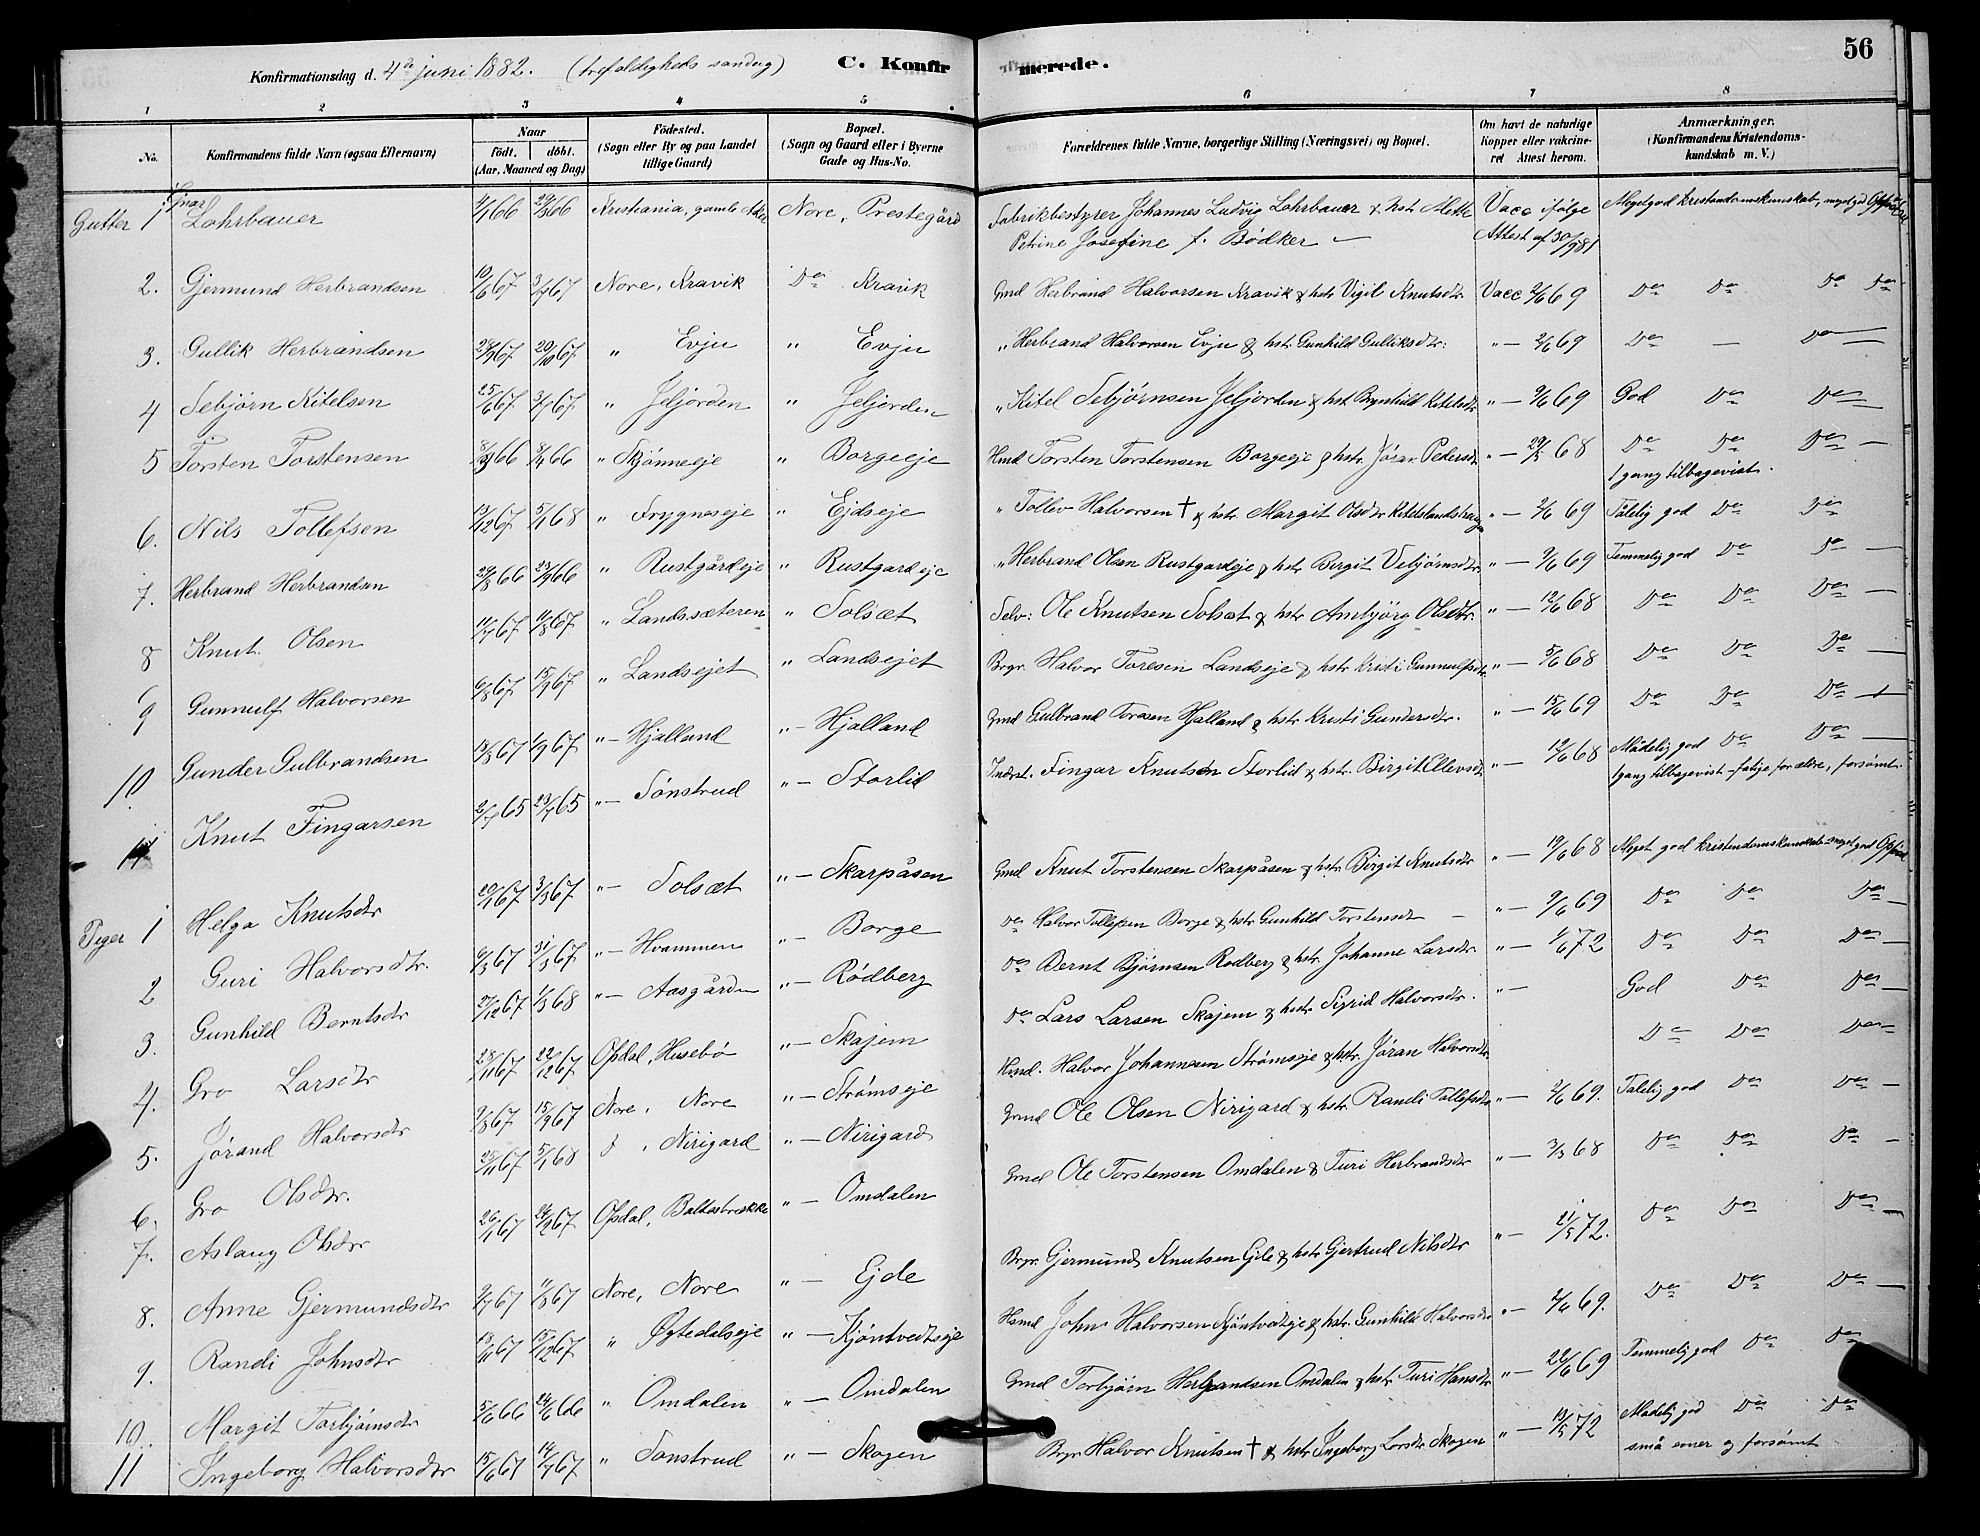 56
Konfirmationsdag d. 4de juni 1882. (trefoldigheds søndag) C. Konfirmerede.
1 2 3 4 5 6 7 8
No. Konfirmandens fulde Navn (ogsaa Efternavn) Naar født. døbt. (Aar, Maaned og Dag) Fødested. (Sogn eller By og paa Landet tillige Gaard) Bopæl. (Sogn og Gaard eller i Byerne Gade og Hus-No. Forældrenes fulde Navne, borgerlige Stilling (Næringsvei) og Bopæl. Om havt de naturlige Kopper eller vakcineret Attest herom. Anmærkninger. (Konfirmandens Kristendomskundskab m. V.)
Gutter 1 Lohrbauer 66 29/3 66 Kristiania, gamle Aker Nore, Prestegård Fabrikbestyrer Johannes Ludvig Lohrbauer & hst. Mette Vacc ifølge Meget god kristendomskunskab, meget god
Petrine Josefine f. Bødker — Attest af 30/9 81
2. Gjermund Herbrandsen 10/6 67 3/7 67 Nore, Kravik Do Kravik Gmd Herbrand Halvorsen Kravik & hstr Vigil Knutsdtr Vacc 2/6 69 Do Do Do Do
3. Gullik Herbrandsen 28/9 67 20/10 67 " Evju " Evju " Herbrand Halvorsen Evju & hst. Gunhild Gulliksdtr. " — 2/6 69 Do — Do —
4 Sebjørn Kitelsen 25/6 67 3/7 67 " Jeljorden " Jeljorden " Kitel Sebjørnsen Jeljorden & hst Brynhild Kitelsdtr " — 9/6 69 God Do Do
5 Torsten Torstensen 8/3 66 8/4 66 " Skjønneeje " Borgeeje Hmd Torsten Torstensen Borgeeje & hstr. Jøran Pedersdtr " — 29/5 68 Do Do Do —
1 gang tilbagevist.
6. Nils Tollefsen 13/12 67 5/1 68 " Frygneseje " Ejdseje " Tollev Halvorsen † & hstr. Margit Olsdtr " — 2/6 69 Tålelig god Do Do
7. Herbrand Herbrandsen 29/8 66 23/9 66 " Rustgårdeje " Rustgardeje " Herbrand Olsen Rustgardeje & hstr Birgit Vebjørnsdtr " — 9/6 69 Temmelig god Do Do —
8 Knut Olsen 11/7 67 11/8 67 " Landssæteren " Solsæt Selv: Ole Knutsen Solsæt & hstr Ambjørg Olsdtr. " — 12/6 68 Do Do Do —
9 Gunnulf Halvorsen 6/8 67 15/9 67 " Landsejet " Landsejet Brgr. Halvor Toresen Landseje & hstr Kristi Gunnulfsdtr " — 5/6 68 Do Do Do —
10 Gunder Gulbrandsen 13/8 67 1/9 67 " — Hjalland " — Hjalland Gmd Gulbrand Toresen Hjalland & hstr Kristi Gundersdtr. " — 15/6 69 Do Do Do —
11 Knut Fingarsen 2/7 65 23/7 65 " — Sønstrud " — Storlid Inderst. Fingar Knutsen Storlid & hstr. Birgit Ellevsdtr " — 12/6 68 Mådelig god Do Do —
1gang tilbagevist - fatige forældre, forsømt.
Piger 1 Helga Knutsdtr 20/1 67 3/3 67 " — Solsæt " — Skarpåsen Gmd Knut Torstensen Skarpåsen & hstr. Birgit Knutsdtr " — 19/6 68 Meget god kristendomskundskab meget god
2 Guri Halvorsdtr. 6/3 67 31/3 67 " — Hvammen " — Borge Do Halvor Tollefsen Borge & hstr Gunhild Torstensdt — " — 9/6 69 Do Do Do —
3. Gunhild Berntsdtr 27/12 67 1/3 68 " — Aasgården " — Rødberg Do Bernt Bjørnsen Rodberg & hstr. Johanne Larsdtr. " — 1/6 72 Do Do Do —
4. Gro Larsdtr 28/11 67 22/12 67 Opdal, Husebø " — Skajem Do Lars Larsen Skajem & hstr Sigrid Halvorsdtr. " — God Do Do —
5. Jørand Halvorsdtr 9/8 67 15/9 67 Nore, Nore " — Strømseje Hmd. Halvor Johannesen Strømseje & hstr. Jøran Halvorsdtr. Do Do Do
6. Gro Olsdtr. 25/11 67 5/1 68 Nirigard " — Nirigard Gmd Ole Olsen Nirigard & hstr. Randi Tollefsdtr " — 2/6 69. Tålelig god Do Do —
7. Aslaug Olsdtr 26/1 67 24/2 67 Opdal, Baltesbrække " — Omdalen Gmd Ole Torstensen Omdalen & Turi Herbrandsdtr " — 3/3 68 Do Do Do —
8. Anne Gjermundsdtr 9/7 67 11/8 67 Nore, Nore " — Ejde Brgr. Gjermund Knutsen Ejde & hstr Gjertrud Nilsdtr " — 21/5 72. Do Do Do —
9. Randi Johnsdtr 13/11 67 15/12 67 " Øgtedalseje " — Kjøntvedtseje Hsmd John Halvorsen Kjøntvedteje & hstr. Gunhild Halvorsdtr " — 2/6 69. Do Do Do —
10. Margit Torbjørnsdtr 5/6 66 24/6 66 " Omdalen " — Omdalen Gmd Torbjørn Herbrandsen Omdalen & hstr Turi Hansdtr " — 22/6 69 Temmelig god Do Do
11 Ingeborg Halvorsdtr 15/6 67 14/7 67 " Sønstrud " — Skogen Brgr Halvor Knutsen † & hstr Ingeborg Larsdtr Skogen " — 19/5 72 Mådelig god Do Do
små evner og forsømt